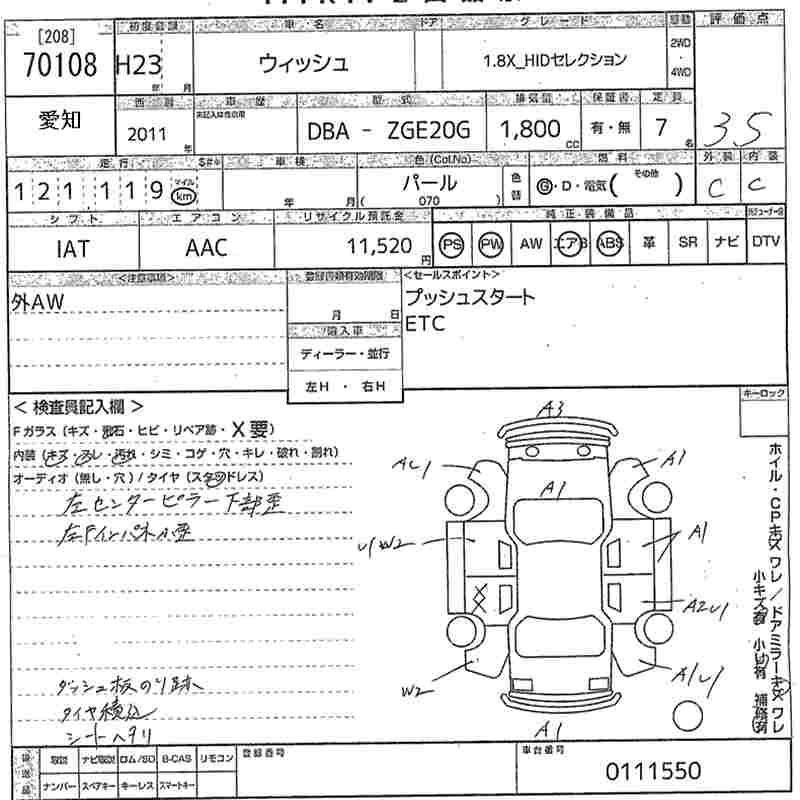 [208]
70108
初度登録 車・名 ドア グレード 駆動 評価点
H23 年 月 ウィッシュ 1.8X_HIDセレクション 2WD・4WD
愛知
西暦 車歴 型式 排気量 保証書 定員
2011 年 未記入は性自用 DBA - ZGE20G 1,800 CC 有・無 7 名 3.5
走行 S# 車検 色(Col.No) 燃料 外装 内装
121,119 マイル km 年 月 パール (070) 色替 G・D・電気(その他) C C
シフト エアコン リサイクル預託金 純正装備品
IAT AAC 11,520 円 PS PW AW エアB ABS 革 SR ナビ DTV
<注意事項> 登録書類有効期限 <セールスポイント>
外AW
月 日
プッシュスタート
ETC
輸入車
ディーラー・並行
左H・右H
キーロック
<検査員記入欄>
Fガラス(キズ・飛石・ヒビ・リペア跡・X要)
内装(キズ・スレ・汚れ・シミ・コゲ・穴・キレ・破れ・割れ)
オーディオ(無し・穴)/タイヤ(スタッドレス)
左センターピラー下部歪
左Fインパネ小歪
ダッシュ板のり跡
タイヤ積込
シートヘタリ
A3
AU1
A1
A1
U1W2
A1
XX
A2U1
W2
A1U1
A1
ホイル・CPキズワレ/ドアミラーキズワレ
小キズ有 小凹有 補修有
後送品
取説 ナビ取説 ロム/SD B-CAS リモコン
ナンバー スペアキー キーレス スマートキー
登録番号
車台番号
0111550